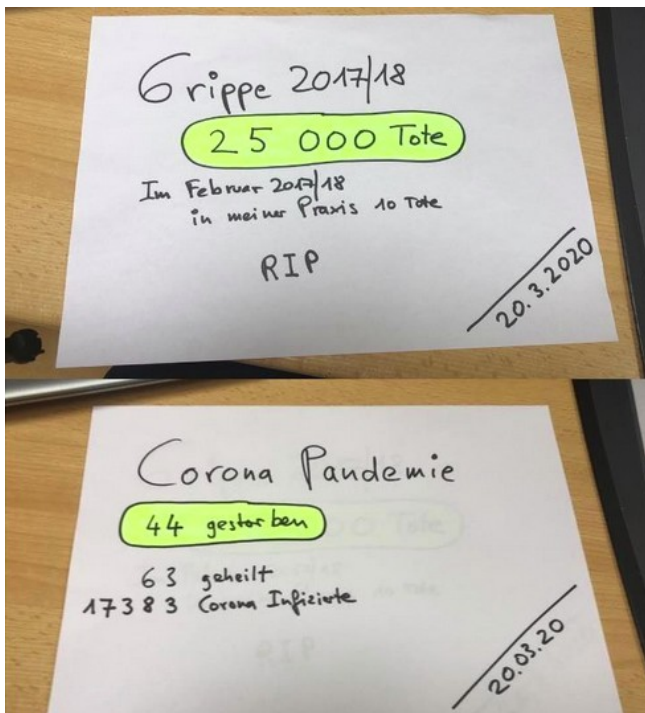 Grippe 2017/18
25 000 Tote
Im Februar 2017/18
in meiner Praxis 10 Tote
RIP
20.3.2020
Corona Pandemie
44 gestorben
63 geheilt
17383 Corona Infizierte
20.03.20